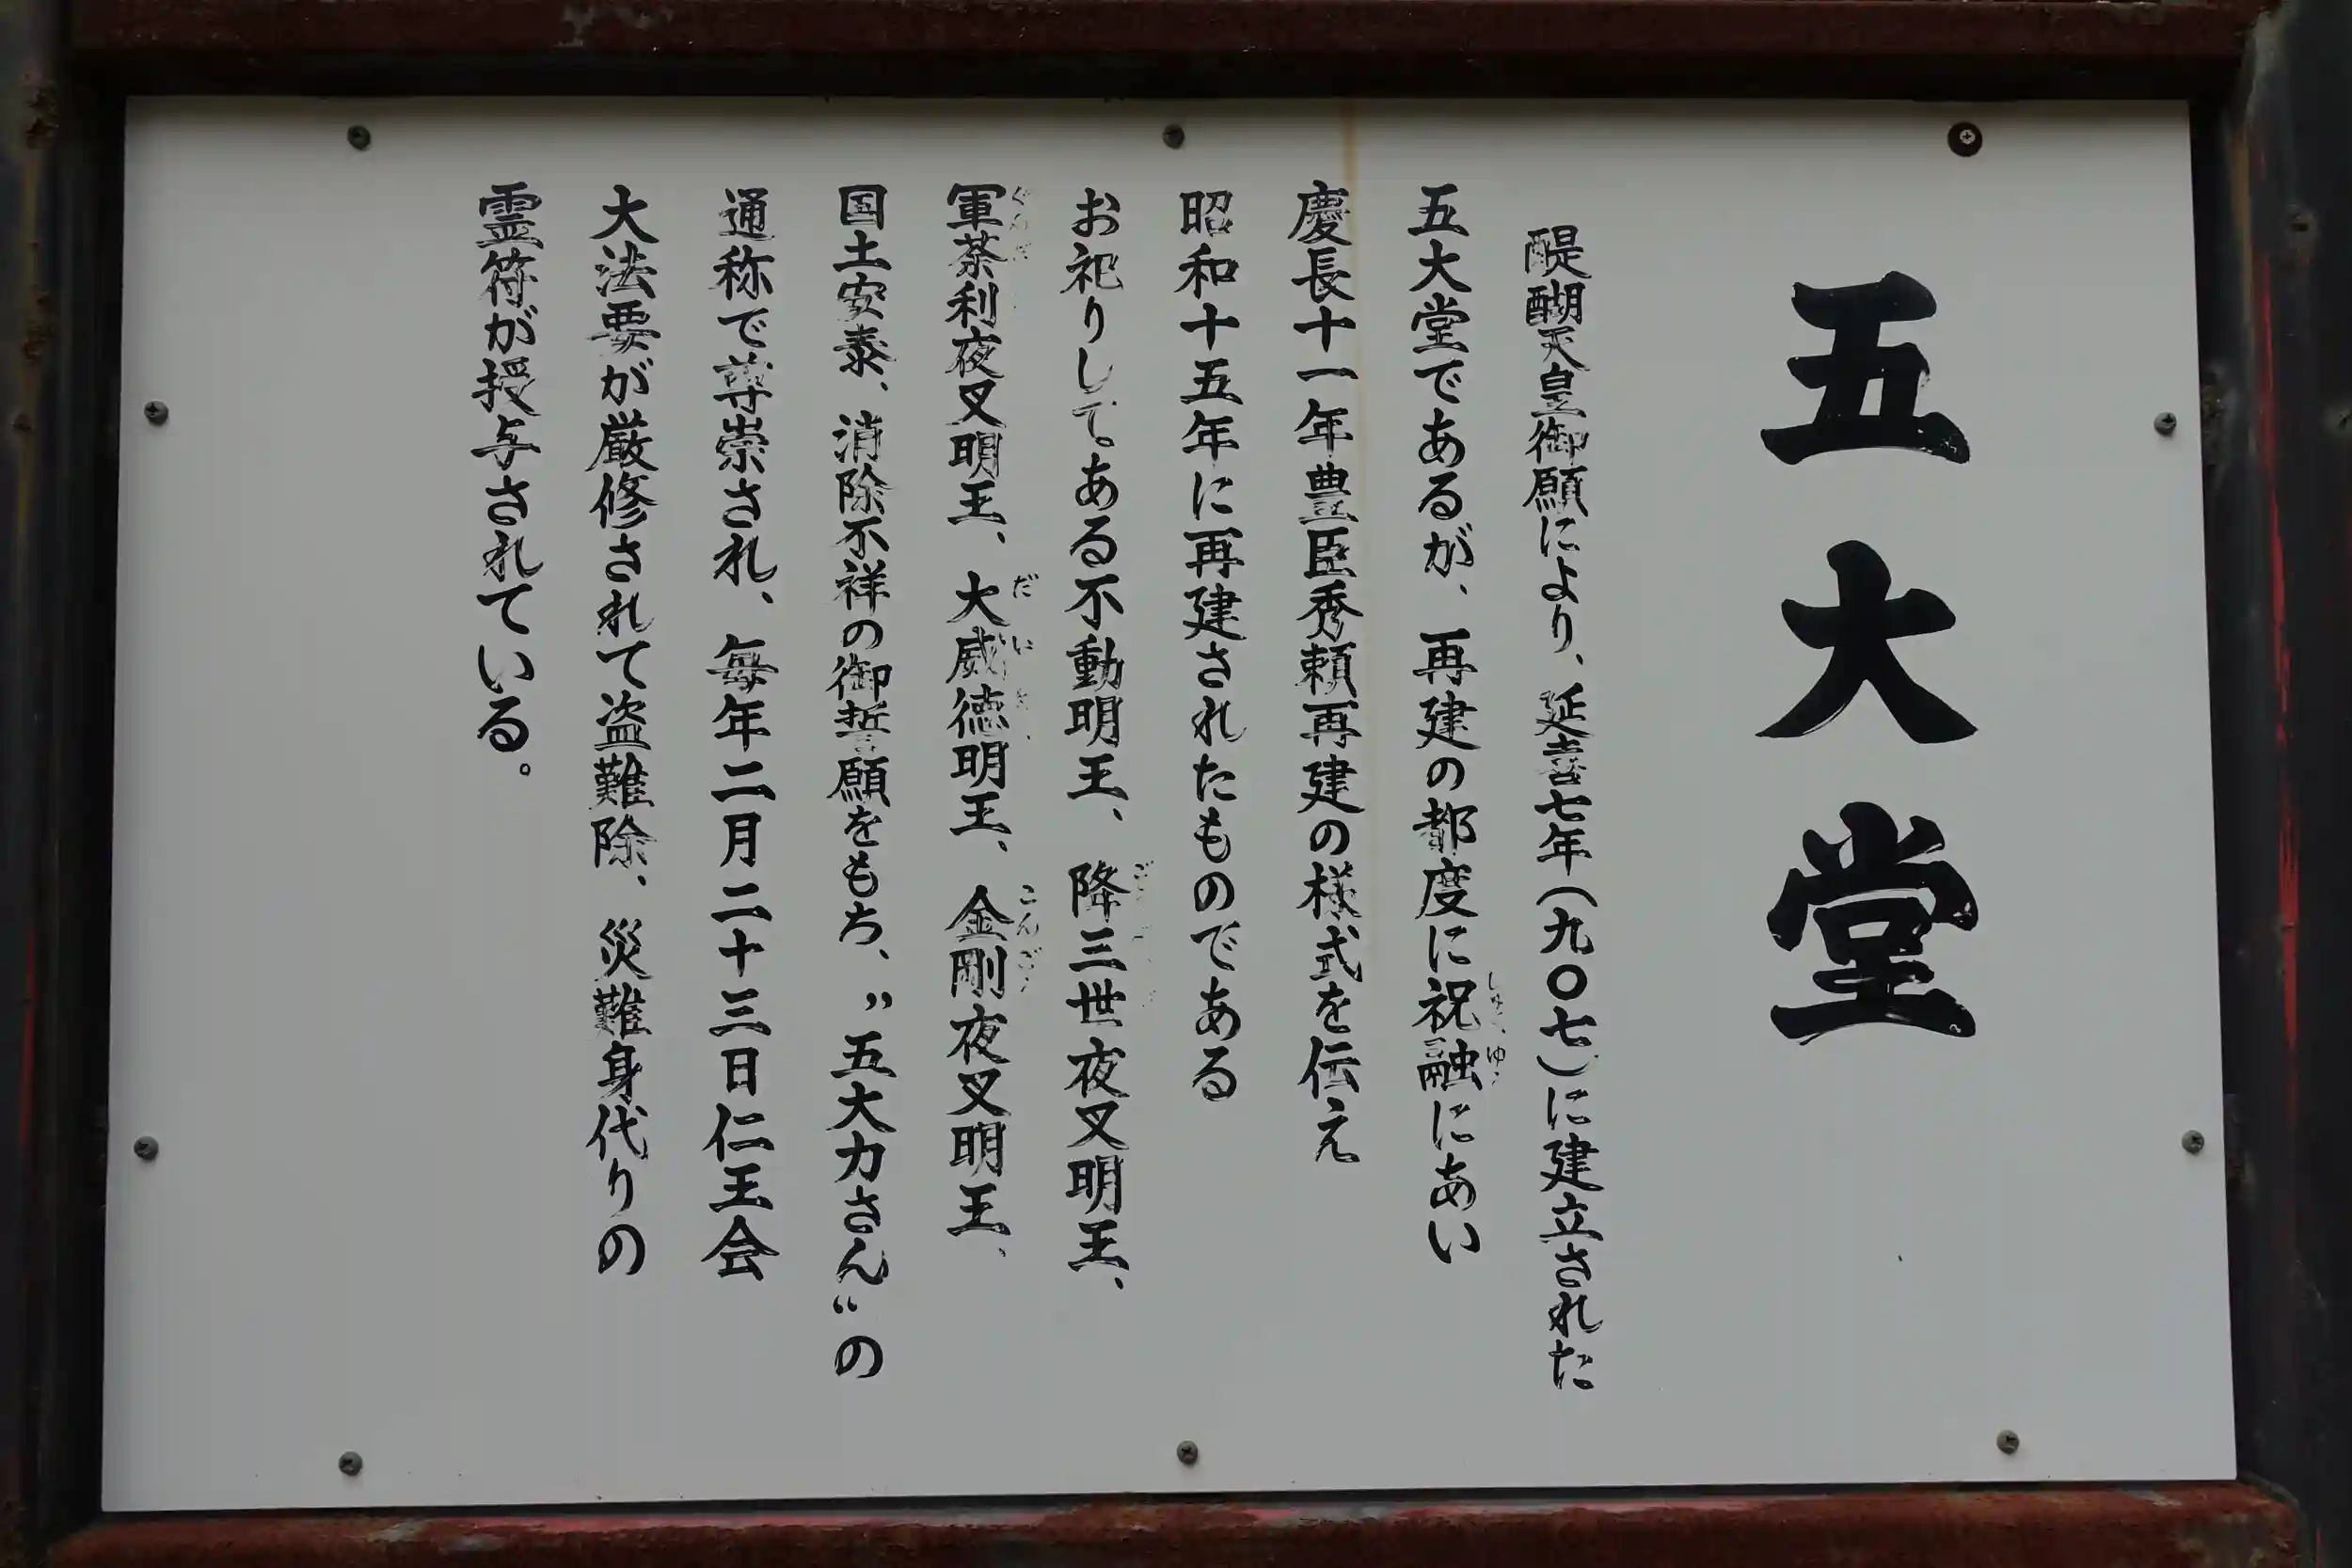 五大堂
醍醐天皇御願により、延喜七年(九〇七)に建立された
五大堂であるが、再建の都度に祝融にあい
慶長十一年豊臣秀頼再建の様式を伝え
昭和十五年に再建されたものである
お祀りしてある不動明王、降三世夜叉明王、
軍荼利夜叉明王、大威徳明王、金剛夜叉明王、
国土安泰、消除不祥の御誓願をもち、〝五大力さん〟の
通称で尊崇され、毎年二月二十三日仁王会
大法要が厳修されて盗難除、災難身代りの
霊符が授与されている。